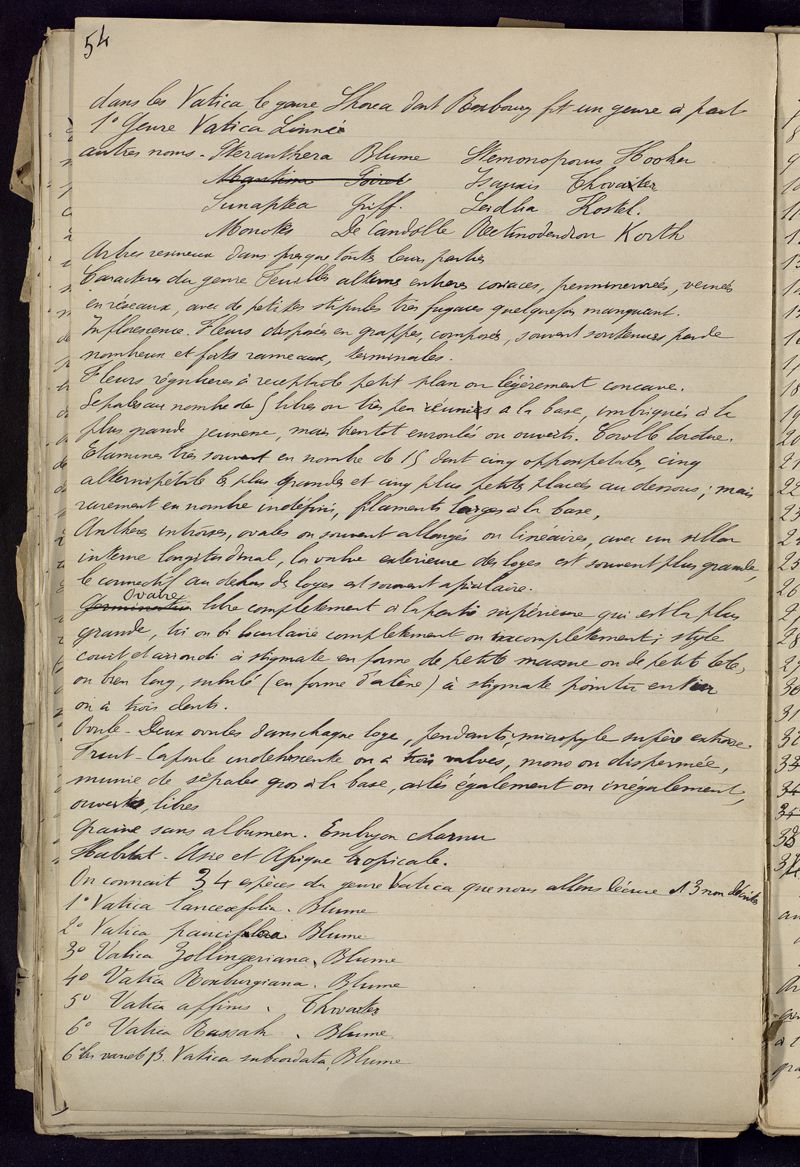 54
dans les Vatica le genre Shorea dont Roxbourg fit un genre à part
1° Genre Vatica Linnée
autres noms - Pteranthera Blume Stemonoporus Hooker
Giret Isauxis Thwaites
Sunaptea Griff. Seidlia Kostel.
Monotes De Candolle Retinodendron Korth
Arbres resineux dans presque toutes leurs parties
Caractères du genre Feuilles alternes entieres coriaces, penninervées, veinées
en réseaux, avec de petites stipules très fugaces quelquefois manquant.
Inflorescence. Fleurs disposées en grappes, composées, souvent soutenues par de
nombreux et forts rameaux, terminales.
Fleurs régulières à receptacle petit plan ou légèrement concave.
Sepales au nombre de 5 libres ou très peu réunis à la base, imbriqués à la
plus grande jeunesse, mais bientot enroulés ou ouverts. Corolle tordue.
Etamines très souvent en nombre de 15 dont cinq oppositipetales, cinq
alternipétales les plus grandes et cinq plus petites placés au dessous; mais
rarement en nombre indéfini, filaments larges à la base,
Anthères introrses, ovales ou souvent allongés ou linéaires, avec un sillon
interne longitudinal, la valve exterieure des loges est souvent plus grande,
le connectif au dehors des loges est souvent apiculaire.
Ovaire
Germination libre completement à la partie supérieure qui est la plus
grande, tri ou bi loculaire completement ou incompletement; style
court et arrondi à stigmate en forme de petite massue ou de petite tete,
ou bien long, subulé (en forme d'alène) à stigmate pointu entier
ou à trois dents.
Ovule - Deux ovules dans chaque loge, pendants, micropyle supère extrorse.
Fruit - Capsule indehiscente ou à trois valves, mono ou dispermée,
munie de sépales gros à la base, ailés également ou inégalement,
ouverts, libres
Graine sans albumen. Embryon charnu
Habitat - Asie et Afrique tropicale.
On connait 34 espèces du genre Vatica que nous allons décrire et 3 non décrites
1° Vatica lanceæfolia. Blume
2° Vatica pauciflora. Blume
3° Vatica Zollingeriana. Blume
4° Vatica Roxburgiana. Blume
5° Vatica affinis. Thwaites
6° Vatica Rassak. Blume
6° bis varieté β. Vatica subcordata. Blume